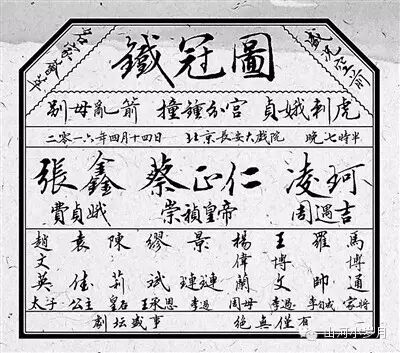 名家薈萃
盛況空前
鐵冠圖
別母亂箭 撞鐘分宮 貞娥刺虎
二零一六年四月十四日 北京長安大戲院 晚七時半
張鑫 蔡正仁 凌珂
費貞娥 崇禎皇帝 周遇吉
趙文英 袁佳 陳莉 繆斌 景璉璉 楊偉蘭 王博文 羅帥 馬博通
太子 公主 皇后 王承恩 李過 周母 李過 李自成 家將
劇坛盛事 絕無僅有
山河小岁月